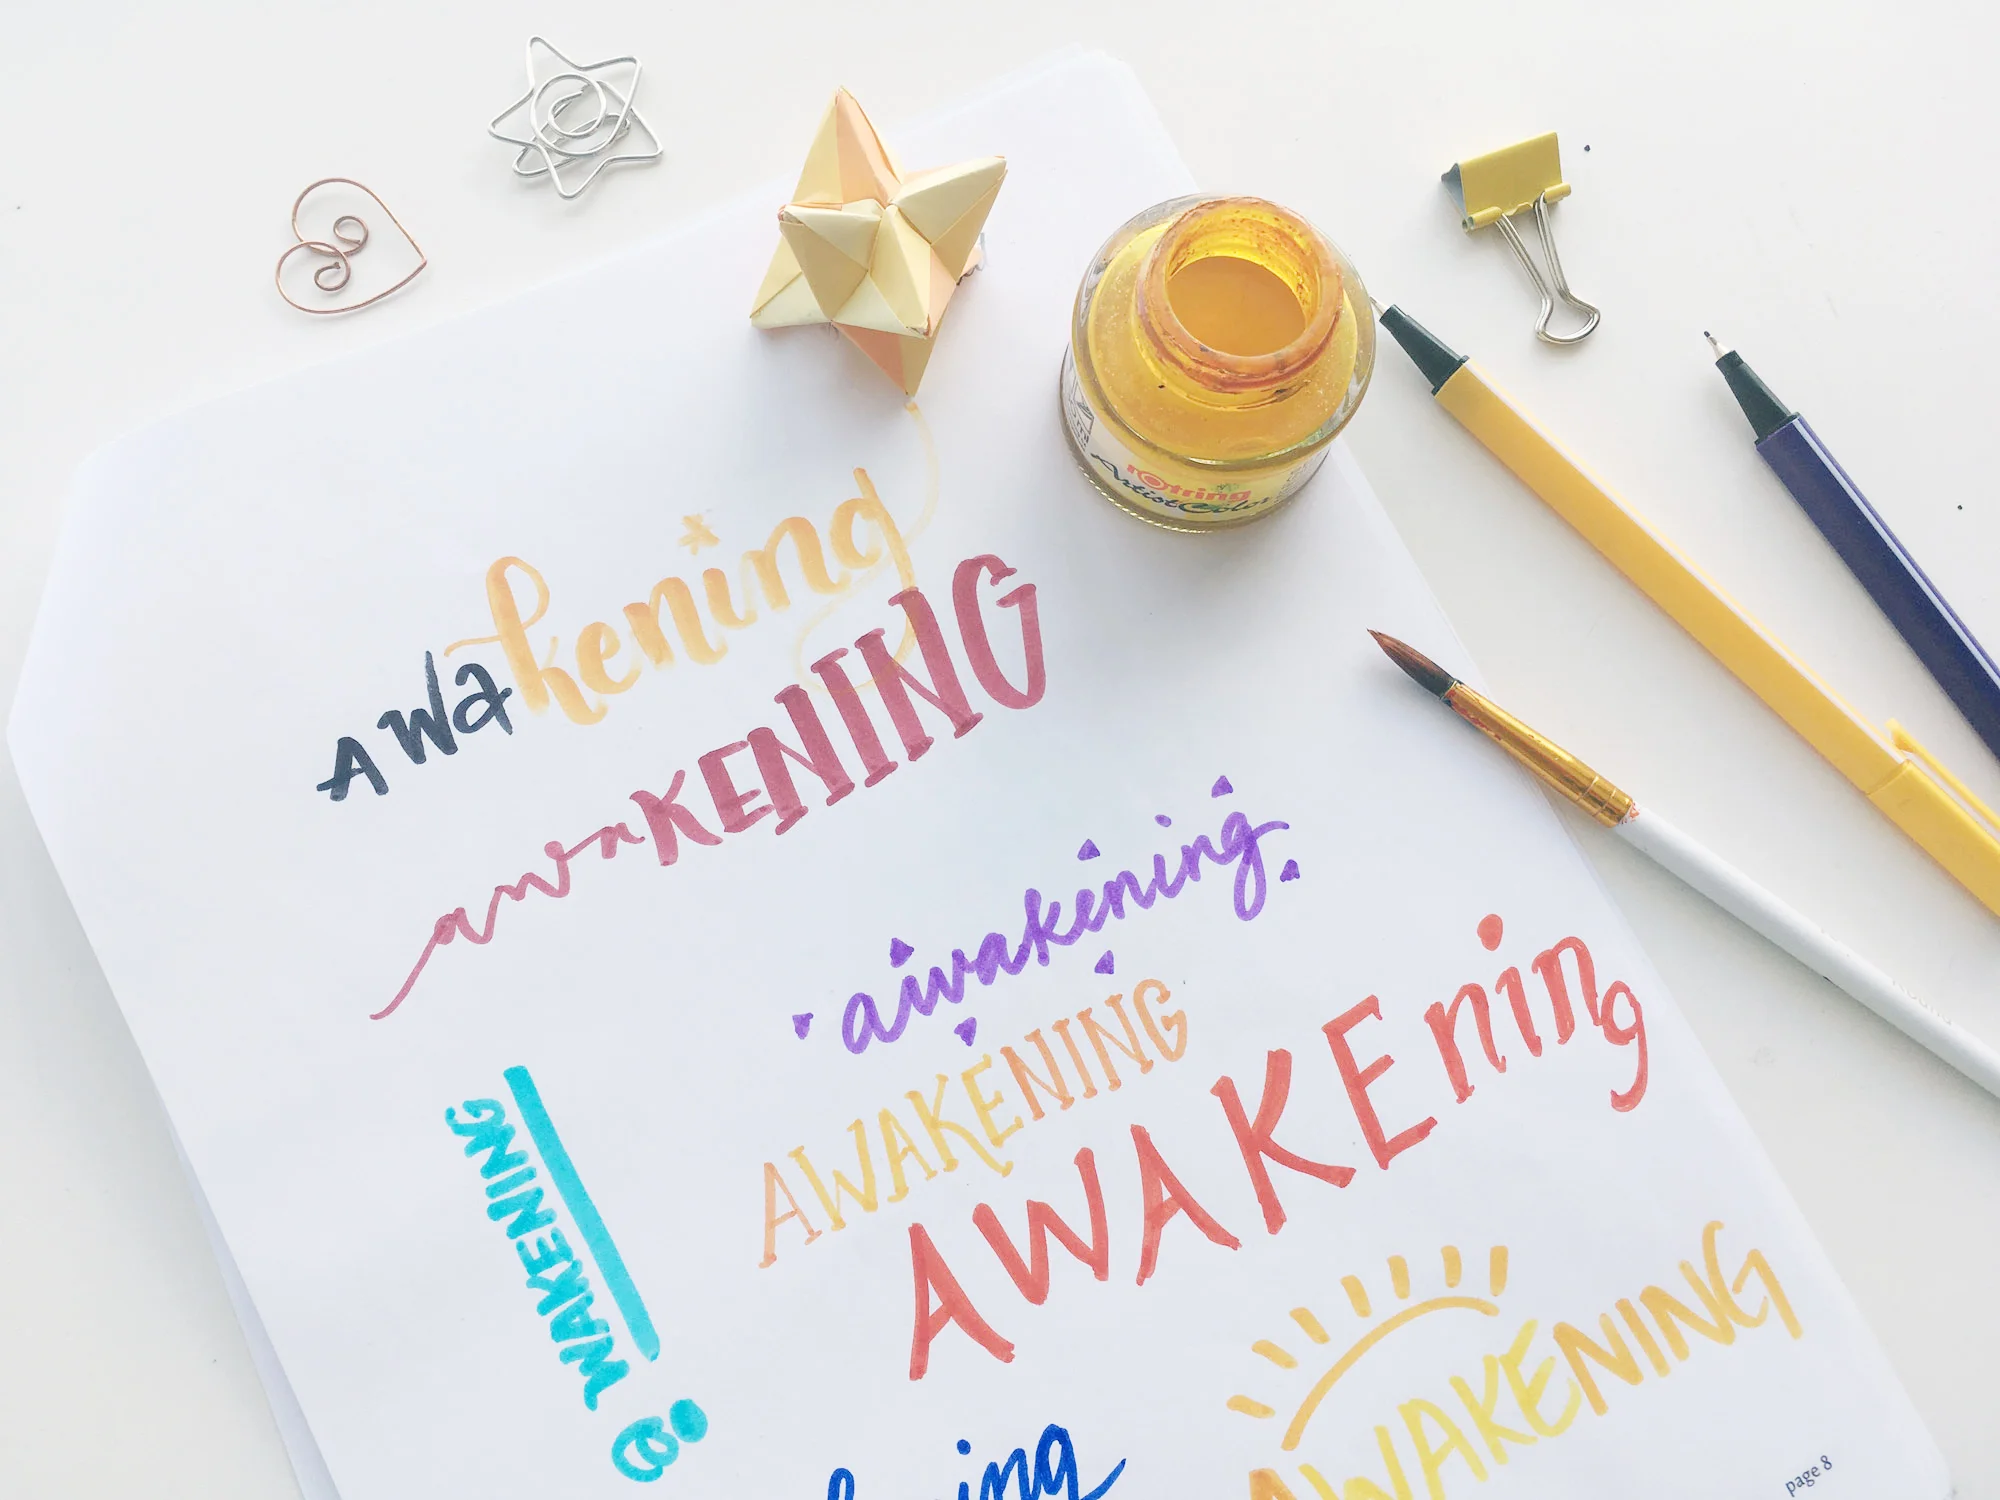 rotring
ArtistColor
Awakening
awaKENING
awakening
AWAKENING
AWAKEning
AWAKENING
AWAKENING
page 8